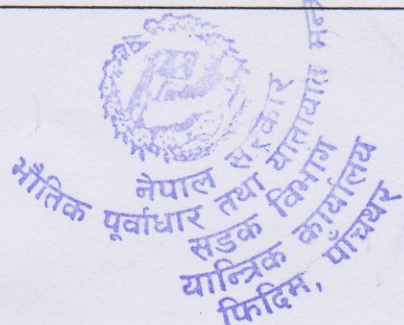 नेपाल सरकार
भौतिक पूर्वाधार तथा यातायात
सडक विभाग
यान्त्रिक कार्यालय
फिदिम, पाँचथर